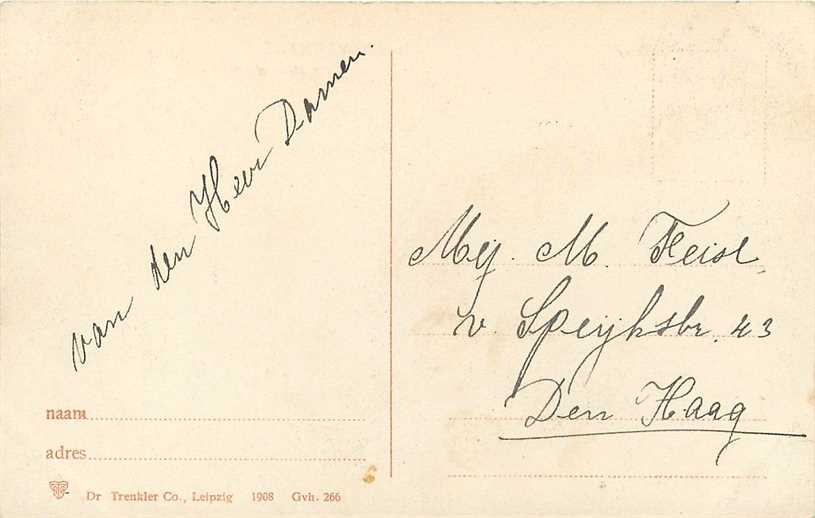 van den Heer Damen.
Mej. M. Feisl,
v. Speijkstr. 43
Den Haag
naam
adres
Dr Trenkler Co., Leipzig 1908 Gvh. 266